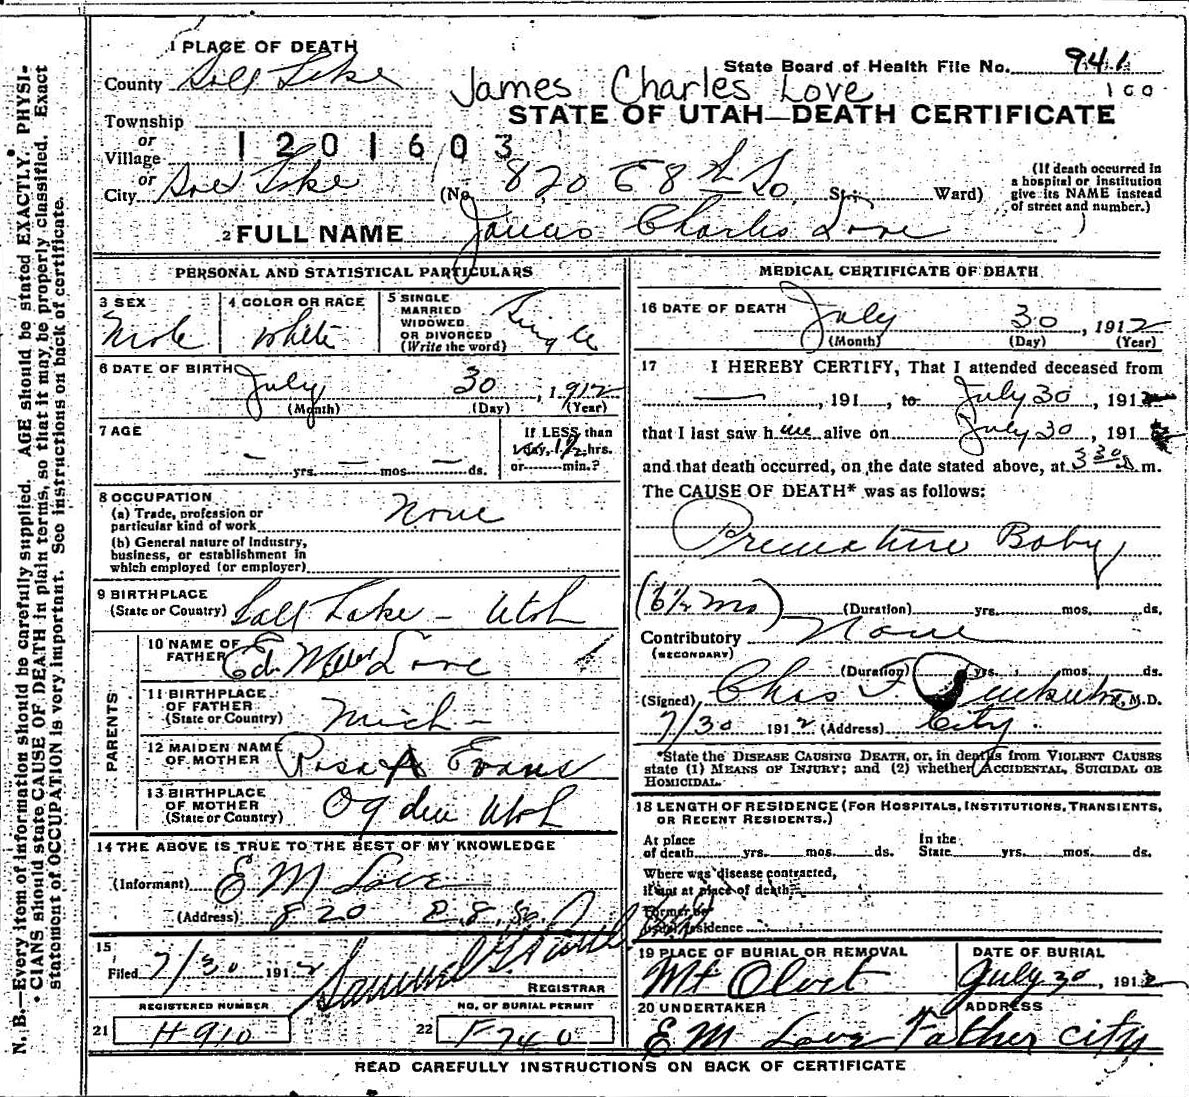 N. B.—Every item of information should be carefully supplied. AGE should be stated EXACTLY. PHYSI-
CIANS should state CAUSE OF DEATH in plain terms, so that it may be properly classified. Exact
statement of OCCUPATION is very important. See instructions on back of certificate.
1 PLACE OF DEATH
County Salt Lake
State Board of Health File No. 941
100
James Charles Love
STATE OF UTAH—DEATH CERTIFICATE
Township
or
Village
1201603
or
City Salt Lake (No. 820 E 8th So. St., Ward)
(If death occurred in
a hospital or institution
give its NAME instead
of street and number.)
2 FULL NAME James Charles Love
PERSONAL AND STATISTICAL PARTICULARS
3 SEX
Male
4 COLOR OR RACE
White
5 SINGLE
MARRIED
WIDOWED
OR DIVORCED
(Write the word)
Single
6 DATE OF BIRTH
July 30, 1912
(Month) (Day) (Year)
7 AGE
— yrs. — mos. — ds.
If LESS than
1 day, 1½ hrs.
or min.?
8 OCCUPATION
(a) Trade, profession or
particular kind of work None
(b) General nature of Industry,
business, or establishment in
which employed (or employer)
9 BIRTHPLACE
(State or Country) Salt Lake - Utah
PARENTS
10 NAME OF
FATHER Ed. Miller Love
11 BIRTHPLACE
OF FATHER
(State or Country) Mich -
12 MAIDEN NAME
OF MOTHER Rosa A Evans
13 BIRTHPLACE
OF MOTHER
(State or Country) Ogden Utah
14 THE ABOVE IS TRUE TO THE BEST OF MY KNOWLEDGE
(Informant) E M Love
(Address) 820 E. 8. So.
15
Filed 7/30 1912 Samuel G.
REGISTRAR
REGISTERED NUMBER
21 H910
NO. OF BURIAL PERMIT
22 F740
MEDICAL CERTIFICATE OF DEATH
16 DATE OF DEATH
July 30, 1912
(Month) (Day) (Year)
17 I HEREBY CERTIFY, That I attended deceased from
—, 191, to July 30, 1912
that I last saw him alive on July 30, 191
and that death occurred, on the date stated above, at 3 30 m.
The CAUSE OF DEATH* was as follows:
Premature Baby
(6½ mo) (Duration) yrs. mos. ds.
Contributory None
(SECONDARY)
(Duration) yrs. mos. ds.
(Signed) Chas F M.D.
7/30 1912 (Address) City
*State the DISEASE CAUSING DEATH, or, in deaths from VIOLENT CAUSES
state (1) MEANS OF INJURY; and (2) whether ACCIDENTAL, SUICIDAL OR
HOMICIDAL.
18 LENGTH OF RESIDENCE (FOR HOSPITALS, INSTITUTIONS, TRANSIENTS,
OR RECENT RESIDENTS.)
At place
of death yrs. mos. ds.
In the
State yrs. mos. ds.
Where was disease contracted,
if not at place of death?
Former or
usual residence
19 PLACE OF BURIAL OR REMOVAL
Mt Olivet
DATE OF BURIAL
July 30, 1912
20 UNDERTAKER
E M Love Father
ADDRESS
City
READ CAREFULLY INSTRUCTIONS ON BACK OF CERTIFICATE